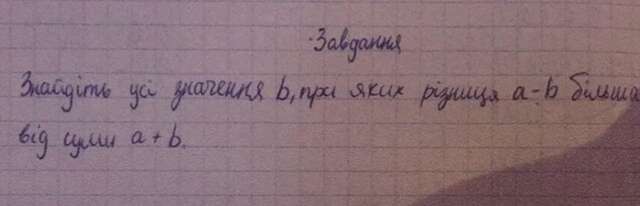 Завдання
Знайдіть усі значення b, при яких різниця a - b більша
від суми a + b.